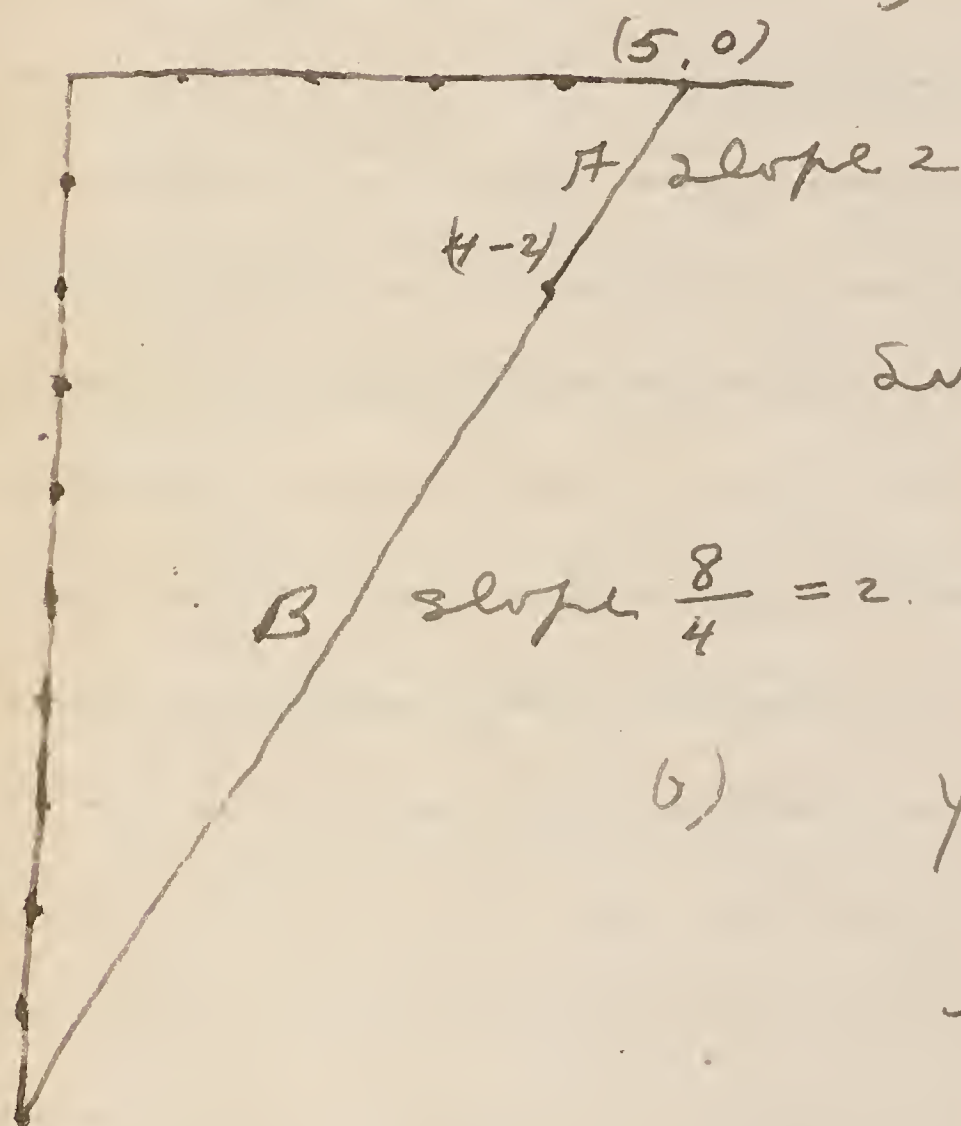 (5, 0)
A slope 2
(4 -2)
B slope 8/4 = 2.
b) y